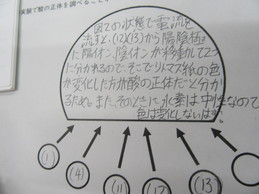 実験で酸の正体を調べるこ
図この状態で電流を
流すと、(12)(13)から陽極格に
に陽イオン、陰イオンが移動して2つ
に分かれるので、そこでリトマス紙の色
が変化した方が酸の正体だと分か
るため。また、そのときに、水素は中性なので
色は変化しないはず
(1)
(4)
(11)
(12)
(13)